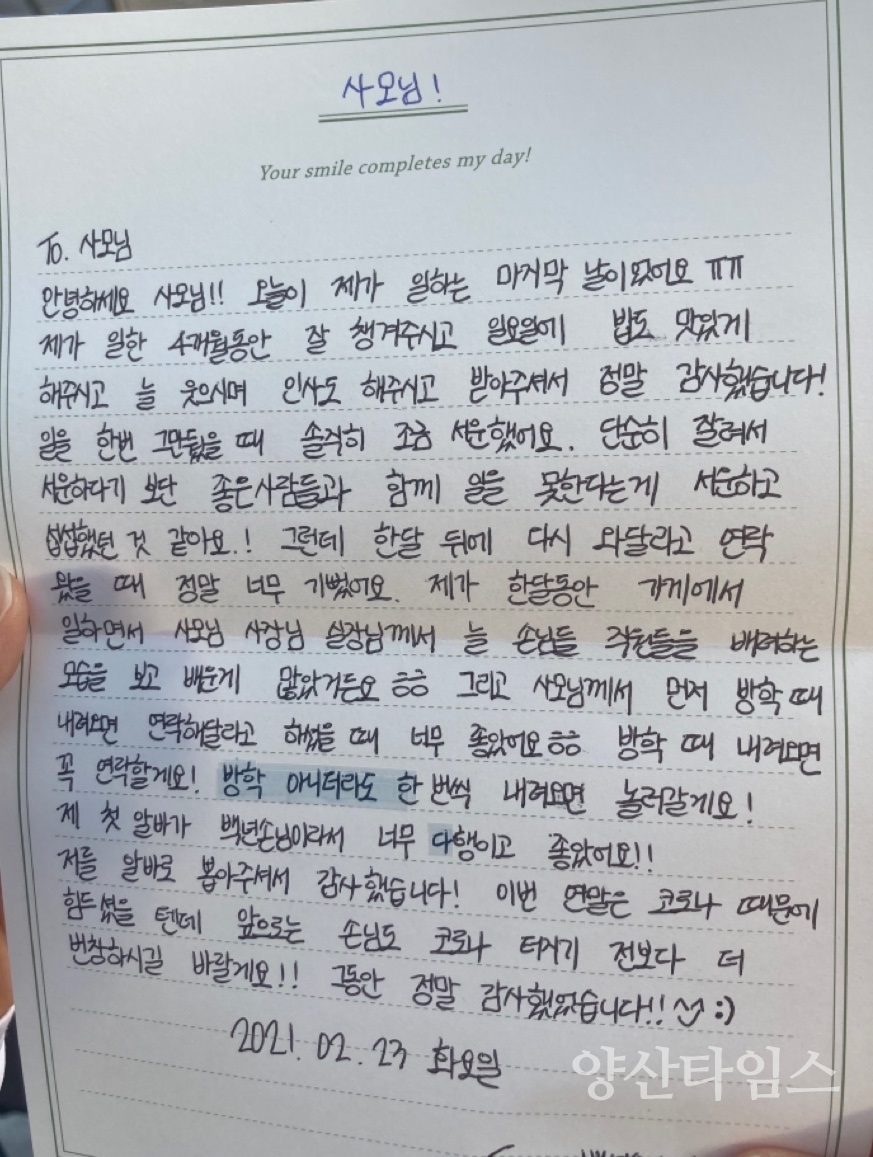 사모님!
Your smile completes my day!
To. 사모님
안녕하세요 사모님!! 오늘이 제가 일하는 마지막 날이었어요 ㅠㅠ
제가 일한 4개월동안 잘 챙겨주시고 일요일에 밥도 맛있게
해주시고 늘 웃으시며 인사도 해주시고 받아주셔서 정말 감사했습니다!
일을 한번 그만뒀을 때 솔직히 조금 서운했어요. 단순히 잘려서
서운하다기 보단 좋은사람들과 함께 일을 못한다는게 서운하고
섭섭했던 것 같아요.! 그런데 한달 뒤에 다시 와달라고 연락
왔을 때 정말 너무 기뻤어요. 제가 한달동안 가게에서
일하면서 사모님 사장님 실장님께서 늘 손님들 직원들을 배려하는
모습을 보고 배운게 많았거든요 ㅎㅎ 그리고 사모님께서 먼저 방학 때
내려오면 연락해달라고 하셨을 때 너무 좋았어요 ㅎㅎ 방학 때 내려오면
꼭 연락할게요! 방학 아니더라도 한 번씩 내려오면 놀러갈게요!
제 첫 알바가 백년손님이라서 너무 다행이고 좋았어요!!
저를 알바로 뽑아주셔서 감사했습니다! 이번 연말은 코로나 때문에
힘드셨을 텐데 앞으로는 손님도 코로나 터지기 전보다 더
번창하시길 바랄게요!! 그동안 정말 감사했었습니다!! :)
2021. 02. 23 화요일
양산타임스